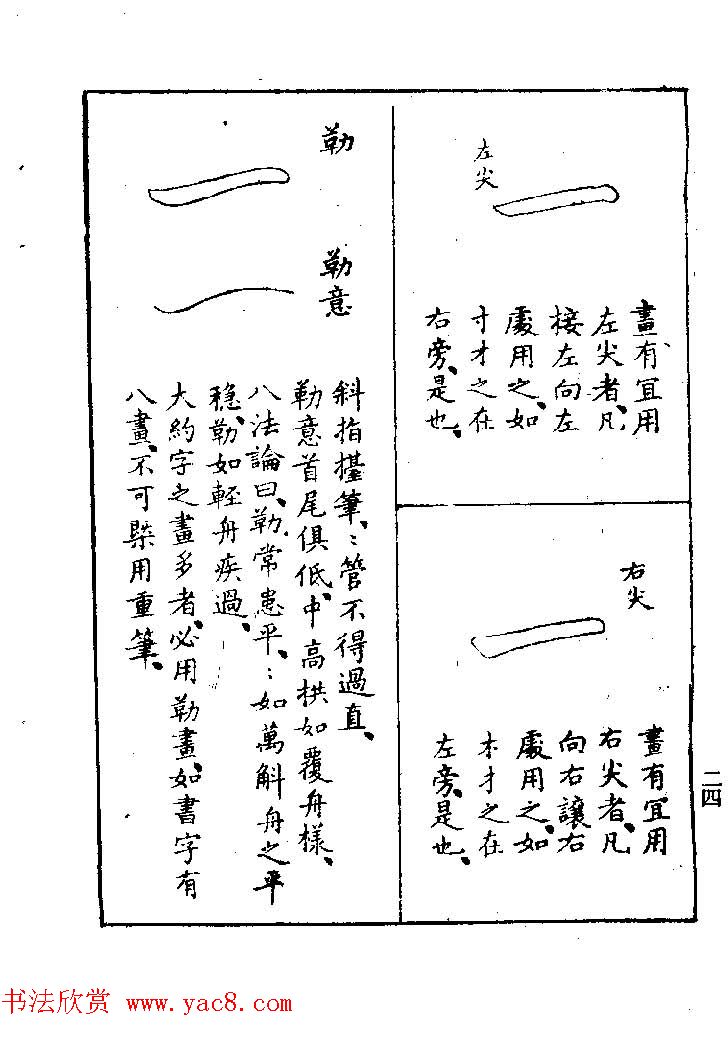 左尖
畫有宜用
左尖者、凡
接左向左
處用之、如
寸才之在
右旁、是
也、
右尖
畫有宜用
右尖者、凡
向右讓右
處用之、如
木才之在
左旁、是
也、
勒
勒意
斜指擡筆、：管不得過直、
勒意首尾俱低、中高拱如覆舟樣、
八法論曰、勒常患平、：如萬斛舟之平
穩、勒如輕舟疾過、
大約字之畫多者、必用勒畫、如書字有
八畫、不可槩用重筆、
二四
书法欣赏 www.yac8.com